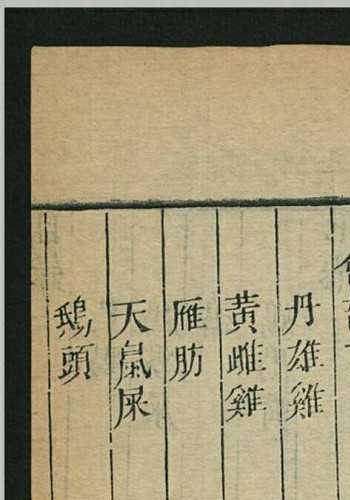 丹雄雞
黃雌雞
雁肪
天鼠屎
鵝頭